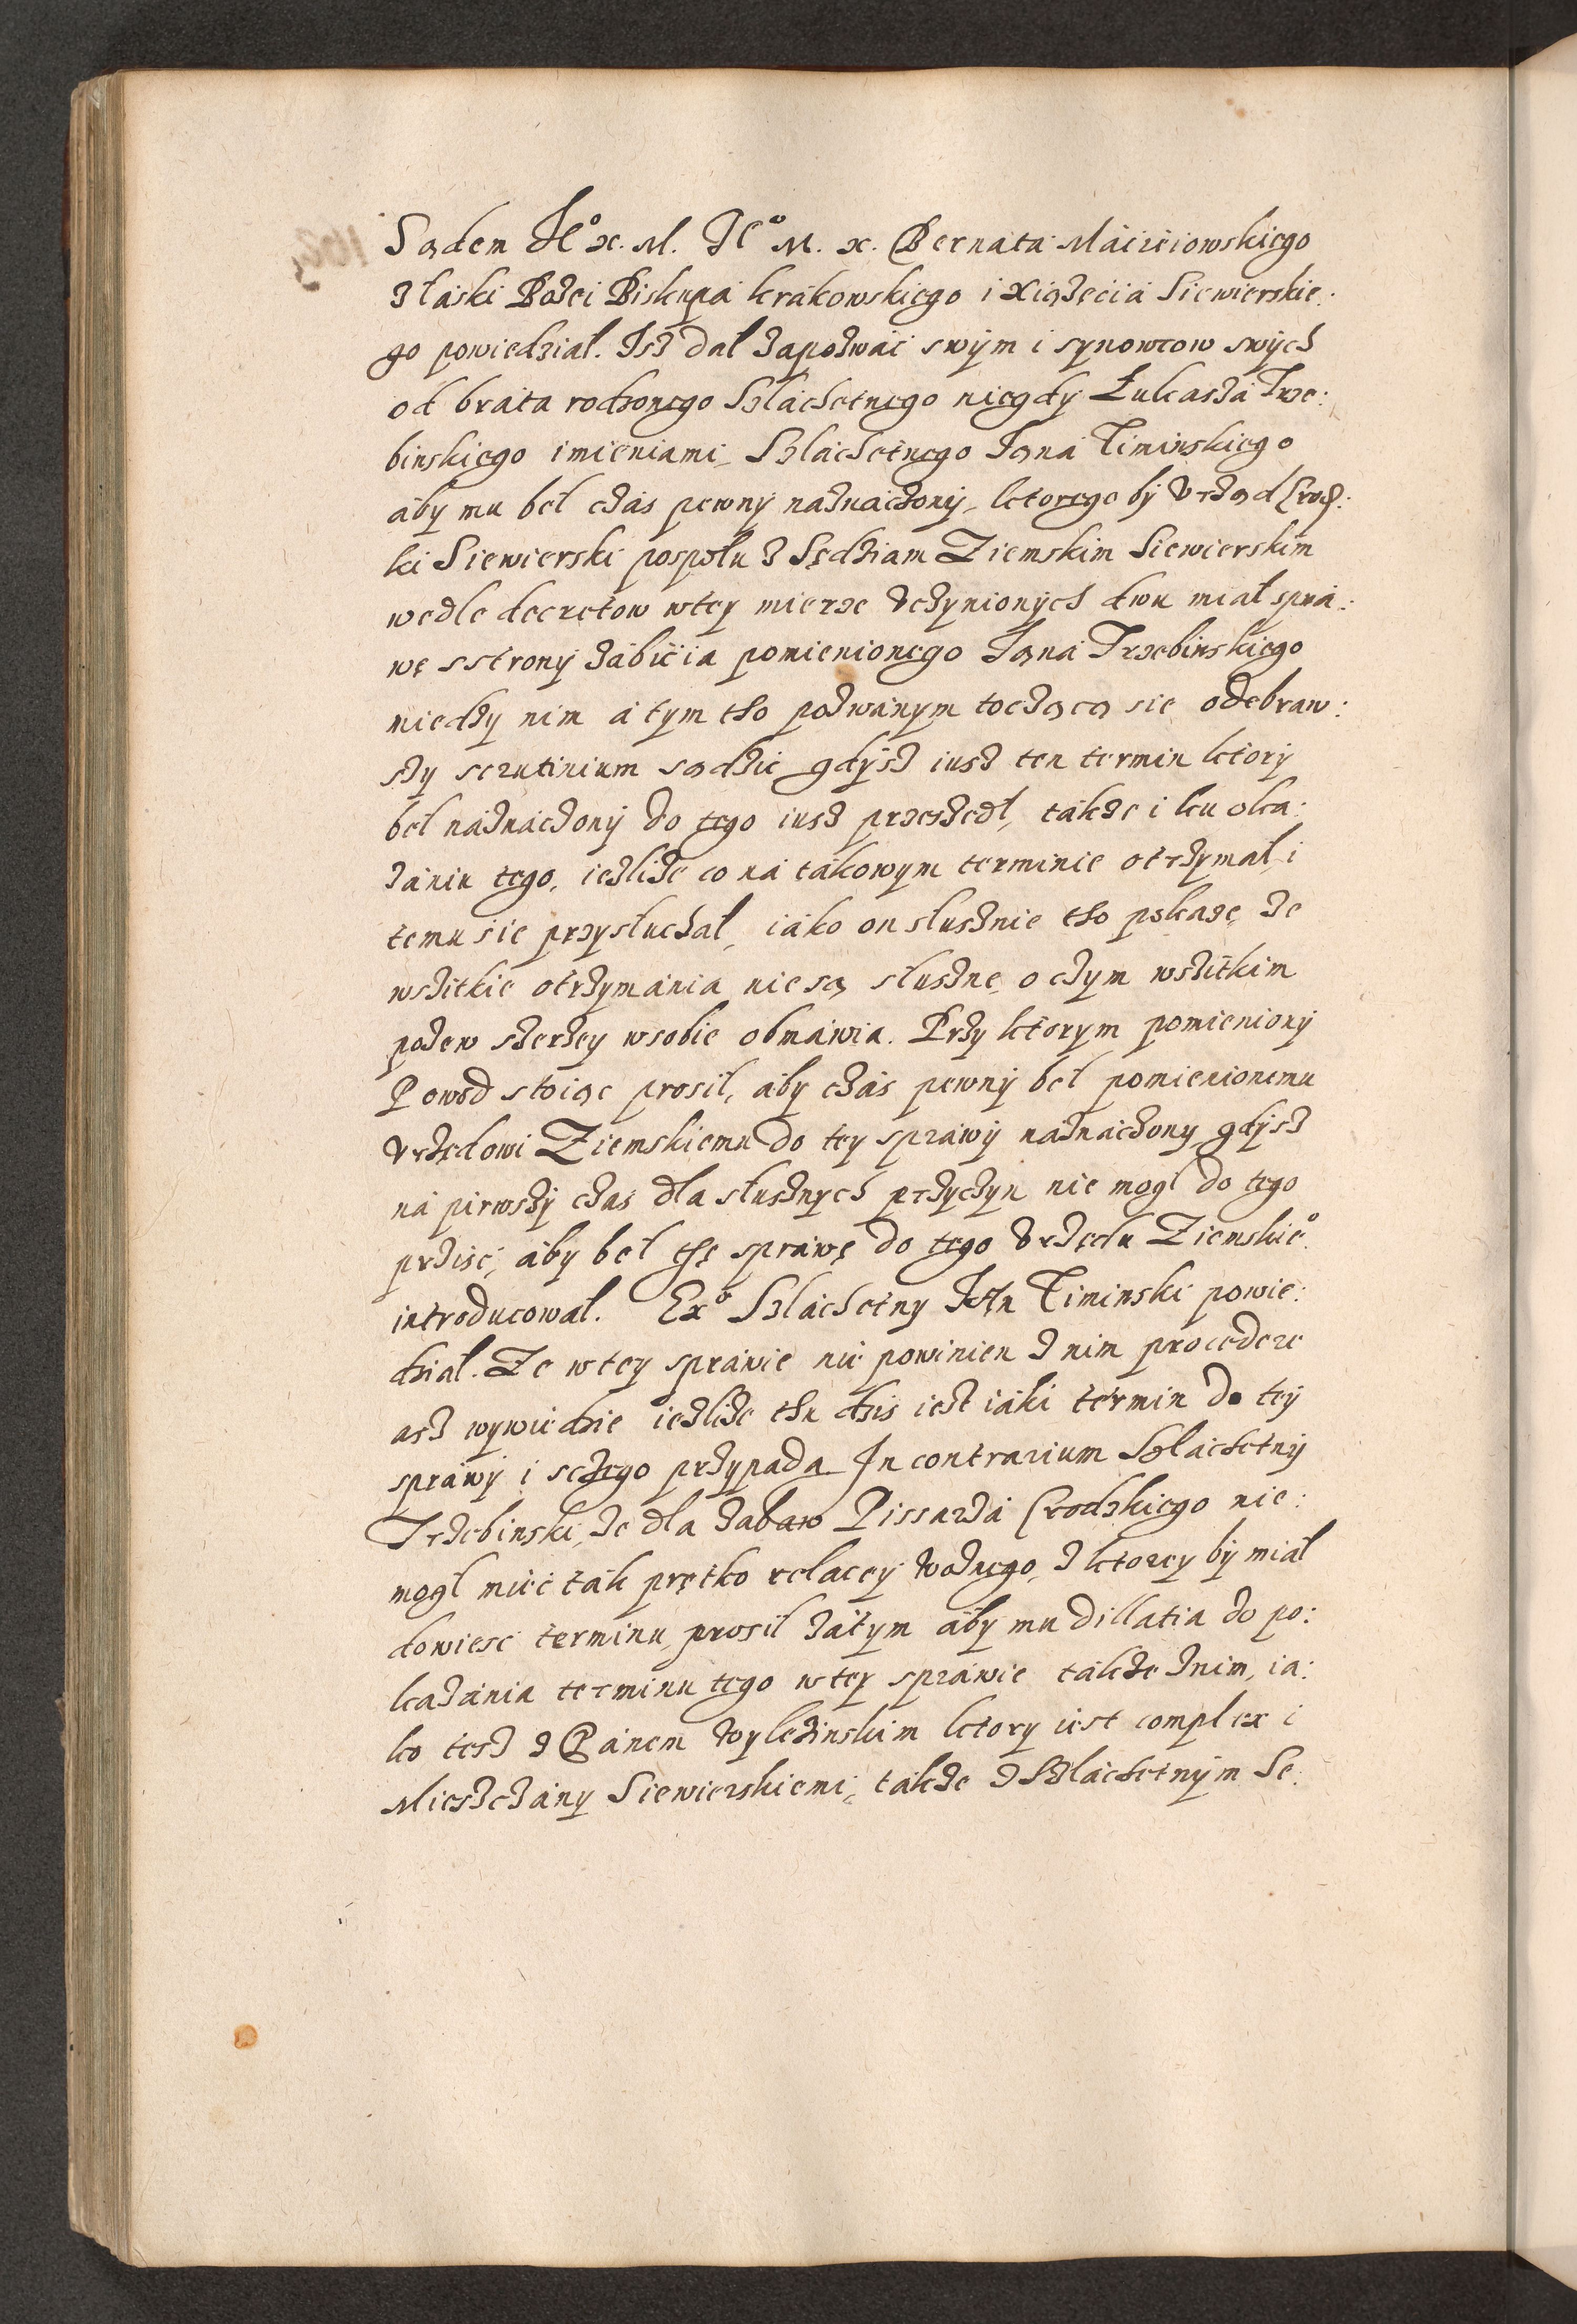 Sądem Je° x. M. Je° M. x. Bernata Macieiowskiego
z łaski Bożei Biskupa krakowskiego i Xiążęcia Siewierskie:
go powiedział. Isz dał zapozwać swym i synowcow swych
od brata rodzonego Szlachetnego niegdy Łukasza Trze:
binskiego imieniami, Szlachetnego Jana Timinskiego
aby mu beł czas pewny naznaczony, ktorego by Vrząd Grodz:
ki Siewierski pospołu z Sędziam Ziemskim Siewierskim
wedle decretow wtey mierze Vczynionych dwu miał spra:
wę sstrony zabicia pomienionego Jana Trzebinskiego
miedzy nim a tym tho pozwanym toczącą sie odebraw:
szy scrutinium sądzić gdysz iusz ten termin ktory
beł naznaczony do tego iusz przeszedł, także i ku oka:
zaniu tego, iezliże co na takowym terminie otrzymał, i
temu sie przysłuchał, iako on słusznie tho pokaże, że
wszitkie otrzymania nie są słuszne, o czym wszitkim
pozew szerzey wsobie obmawia. Przy ktorym pomieniony
Powod stoiąc prosił, aby czas pewny beł pomienionemu
Vrzędowi Ziemskiemu do tey sprawy naznaczony gdysz
na pirwszy czas dla słusznych przyczyn nie mogł do tego
przisć, aby beł thę sprawę do tego Vrzędu Ziemskie°
introducował. Ex° Szlachetny Jan Timinski powie:
dział. Ze wtey sprawie nie powinien z nim procedere
asz wywiedzie iezliże thu dzis iest iaki termin do tey
sprawy i sczego przypada. In contrarium Szlachetny
Trzebinski, że dla zabaw Pissarza Grodzkiego nie:
mogł mieć tak prętko relacey Woznego, z ktorey by miał
dowiesc terminu, prosił zatym aby mu dillatia do po:
kazania terminu tego wtey sprawie także znim, ia:
ko tesz z Panem Wylezinskim ktory iest complex i
Mieszczany Siewierskiemi, także z Szlachetnym Se: